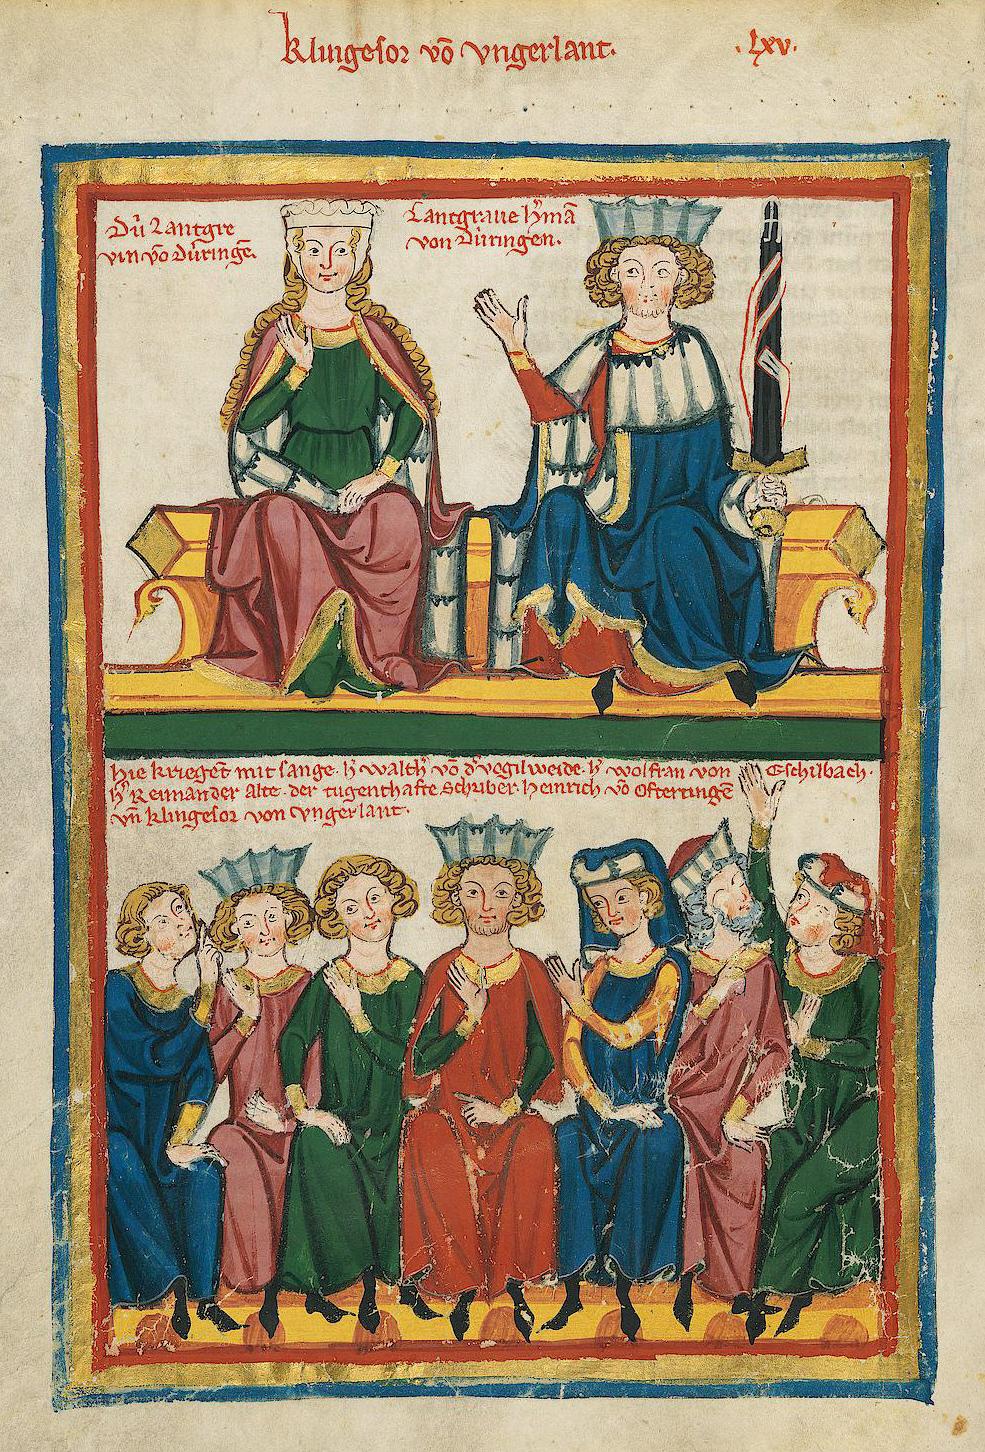 Klingesor võ vngerlant.
.lxv.
Dů Lantgre
vin võ důringẽ.
Lantgraue h̾mã
von Důringen.
Hie krieget̃ mit sange. h̾ walth̾ võ d̾ vogilweide. h̾ wolfran von Eschilbach.
h̾ Reimander Alte. der tugenthafte Schriber. Heinrich võ Oftertingẽ
vñ klingesor von vngerlant.